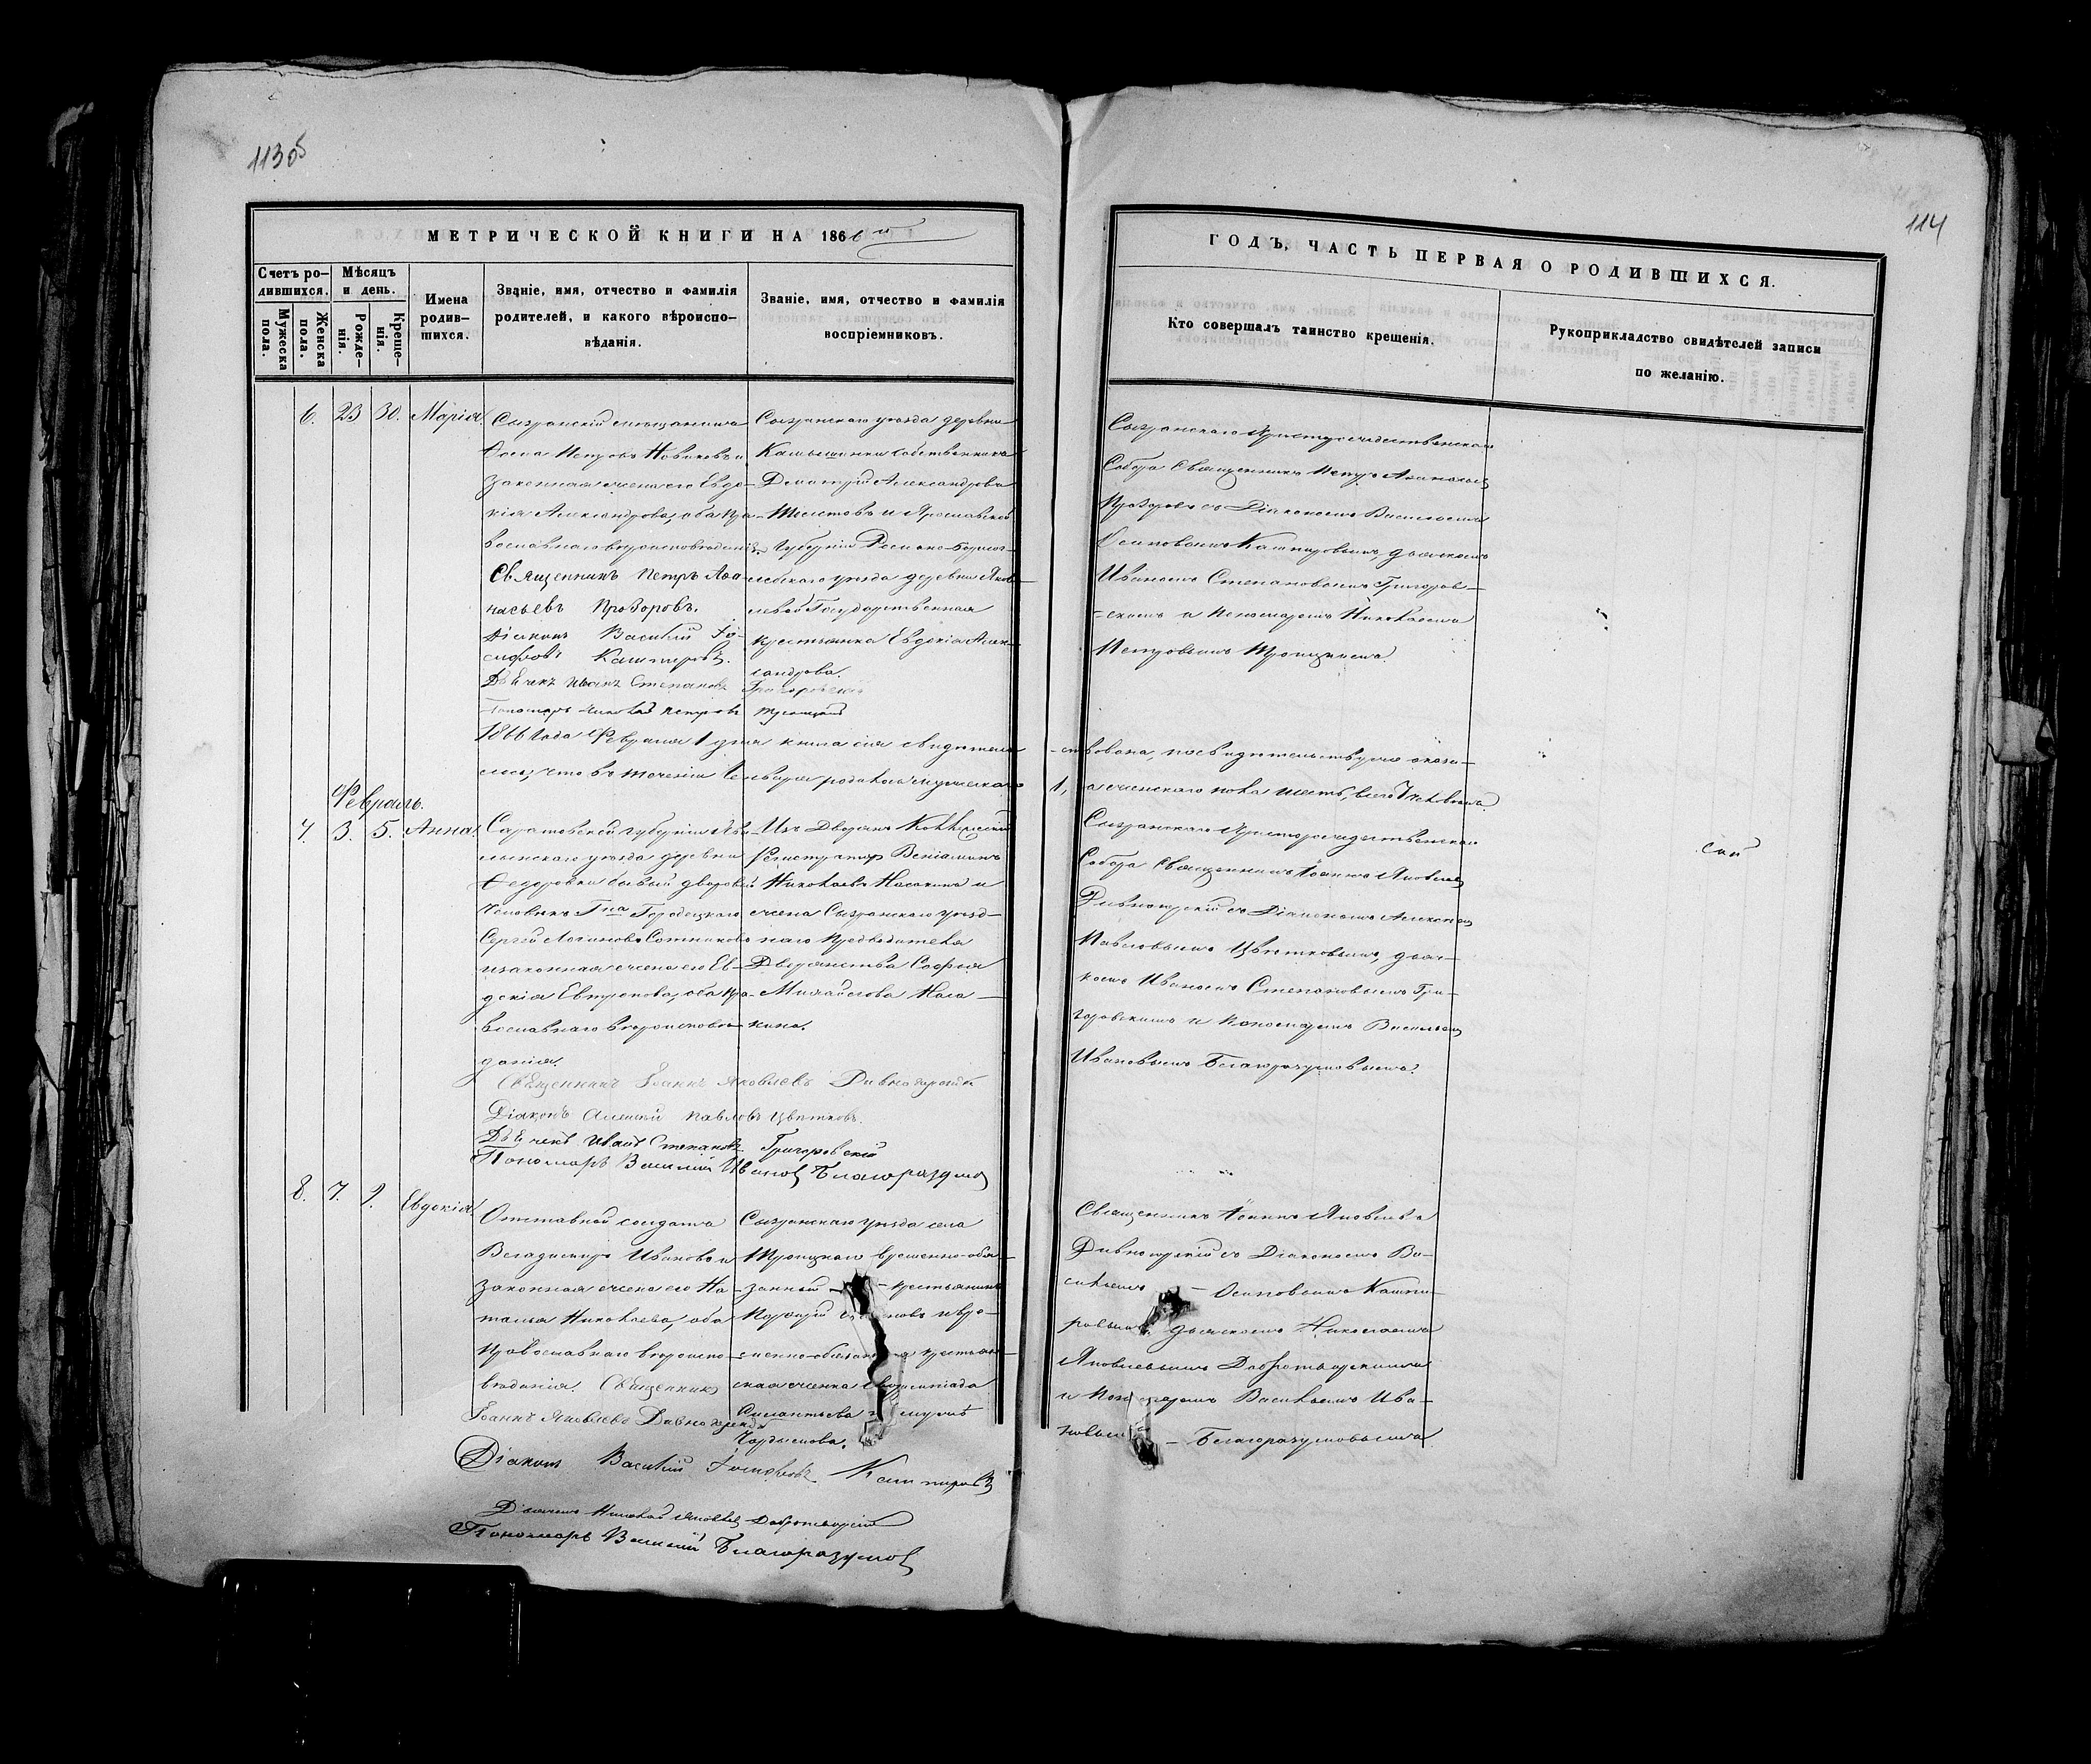 113об
114
МЕТРИЧЕСКОЙ КНИГИ НА 1866й
ГОДЪ, ЧАСТЬ ПЕРВАЯ О РОДИВШИХСЯ.
Счетъ ро-
дившихся.
Мужеска пола.
Женска пола.
Мѣсяцъ
и день.
Рожде-
нія.
Креще-
нія.
Имена
родив-
шихся.
Званіе, имя, отчество и фамилія
родителей, и какого вѣроиспо-
вѣданія.
Званіе, имя, отчество и фамилія
воспріемниковъ.
Кто совершалъ таинство крещенія.
Рукоприкладство свидѣтелей записи
по желанію.
6. 23 30. Марія.
Сызранскій мѣщанинъ
Петровъ Новиковъ и
законная жена его Евдо-
кія Александрова, оба пра-
вославнаго вѣроисповѣданія.
Священникъ Петръ Аѳа-
насьевъ Прозоровъ.
Діаконъ Василій Іо-
сифовъ Кашпировъ.
Дьячекъ Иванъ Степановъ Григоровскій
Пономарь Николай Петровъ Троицкій
Сызранскаго уѣзда деревни
Камышинки собственникъ
Дмитрій Александровъ
и Ярославской
Губерніи Романо-Борисог-
лебскаго уѣзда деревни Яков-
левой Государственная
крестьянка Евдокія Алек-
сандрова.
Сызранскаго Христорождественскаго
Собора Священникъ Петръ Аѳанасьев
Прозоровъ съ Діакономъ Василіемъ
Осиповымъ Кашпировымъ, дьячкомъ
Иваномъ Степановымъ Григоров-
-скимъ и пономаремъ Николаемъ
Петровымъ Троицкимъ.
1866 года Февраля 1 дня книга сія свидѣтель-
-ствована, по свидѣтельству оказа-
лось, что въ теченіи Генваря родилось мужескаго
1, а женскаго пола шесть, всего 7 человѣкъ.
Февраль.
7. 3. 5. Анна.
Саратовской губерніи Хва-
лынскаго уѣзда деревни
Федоровки бывый дворовый
человѣкъ Гна Городецкаго
Сергѣй Логиновъ Сотниковъ
и законная жена его Ев-
докія Евтропова, оба пра-
вославнаго вѣроисповѣ-
данія.
Священникъ Іоаннъ Яковлевъ Дивногорскій
Діаконъ Алексѣй Павловъ Цвѣтковъ.
Дьячекъ Иванъ Степановъ Григоровскій
Пономарь Василій Ивановъ Благоразумов
Изъ Дворянъ Коллежскій
Регистраторъ Веніаминъ
Николаевъ Насакинъ и
жена Сызранскаго уѣзд-
наго Предводителя
Дворянства Софья
Михайлова Наса-
кина.
Сызранскаго Христорождественскаго
Собора Священникъ Іоаннъ Яковлев
Дивногорскій съ Діакономъ Алексѣем
Павловымъ Цвѣтковымъ, дьяч-
комъ Иваномъ Степановымъ Гри-
горовскимъ и пономаремъ Василіем
Ивановымъ Благоразумовымъ.
8. 7. 9. Евдокія.
Отставной солдатъ
Владиміръ Ивановъ и
законная жена его На-
талья Николаева, оба
православнаго вѣроиспо-
вѣданія. Священникъ
Іоаннъ Яковлевъ Дивногорскій
Діаконъ Василій Іосифовъ Кашпировъ
Дьячекъ Николай Яковлев Добротворскій
Пономарь Василій Благоразумов
Сызранскаго уѣзда села
Троицкаго временно-обя-
занный крестьянинъ
и вре-
менно-обязанная крестьян-
ская женка
Чардымова.
Священникъ Іоаннъ Яковлевъ
Дивногорскій съ Діакономъ Ва-
сильемъ - Осиповымъ Кашпи-
ровымъ, дьячкомъ Николаемъ
Яковлевымъ Добротворскимъ
и пономаремъ Васильемъ Ива-
новымъ - Благоразумовымъ